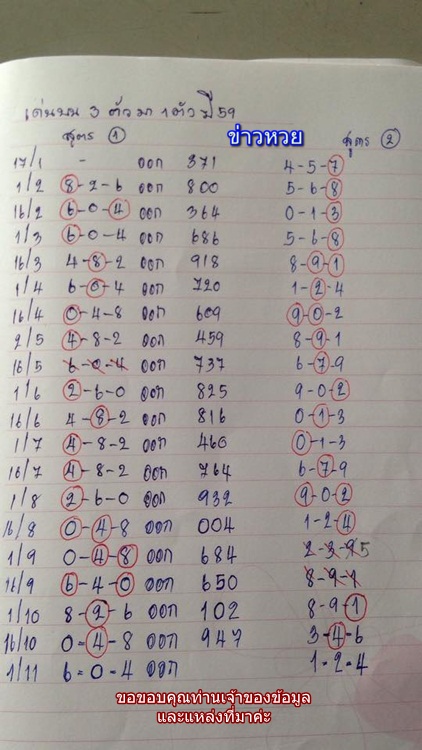 เด่นบน 3 ตัวมา 1 ตัว ปี 59
ข่าวหวย
สูตร ① สูตร ②
17/1 - ออก 371 4-5-7
1/2 8-2-6 ออก 800 5-6-8
16/2 6-0-4 ออก 364 0-1-3
1/3 6-0-4 ออก 686 5-6-8
16/3 4-8-2 ออก 918 8-9-1
1/4 6-0-4 ออก 720 1-2-4
16/4 0-4-8 ออก 609 9-0-2
2/5 4-8-2 ออก 459 8-9-1
16/5 6-0-4 ออก 737 6-7-9
1/6 2-6-0 ออก 825 9-0-2
16/6 4-8-2 ออก 816 0-1-3
1/7 4-8-2 ออก 460 0-1-3
16/7 4-8-2 ออก 764 6-7-9
1/8 2-6-0 ออก 932 9-0-2
16/8 0-4-8 ออก 004 1-2-4
1/9 0-4-8 ออก 684 5
16/9 6-4-0 ออก 650 8-9-1
1/10 8-2-6 ออก 102 8-9-1
16/10 0-4-8 ออก 947 3-4-6
1/11 6-0-4 ออก 1-2-4
ขอขอบคุณท่านเจ้าของข้อมูล
และแหล่งที่มาค่ะ